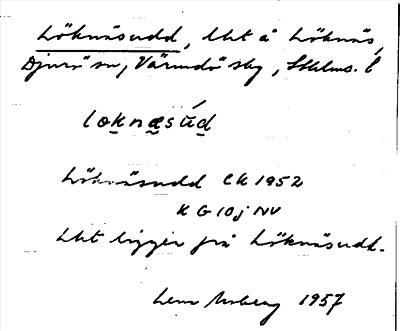 Löknäsudd, Lht å Löknäs,
Djurö sn, Värmdö skg, Sthlms. l
loknæsúd
Löknäsudd EK 1952
K G 10 j NV
Lht ligger på Löknäsudd.
1957